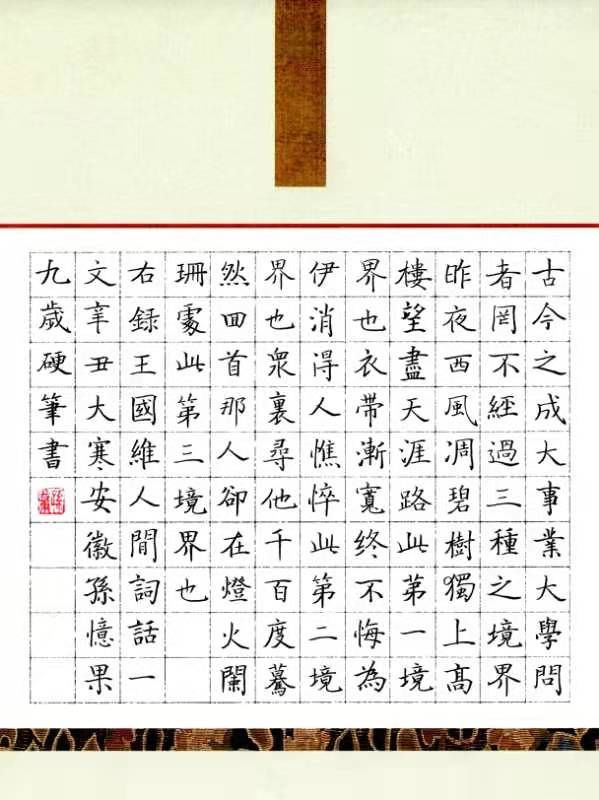 古今之成大事業大學問
者罔不經過三種之境界
昨夜西風凋碧樹獨上高
樓望盡天涯路此第一境
界也衣帶漸寬終不悔為
伊消得人憔悴此第二境
界也衆裏尋他千百度驀
然回首那人卻在燈火闌
珊處此第三境界也
右録王國維人間詞話一
文辛丑大寒安徽孫憶果
九歲硬筆書